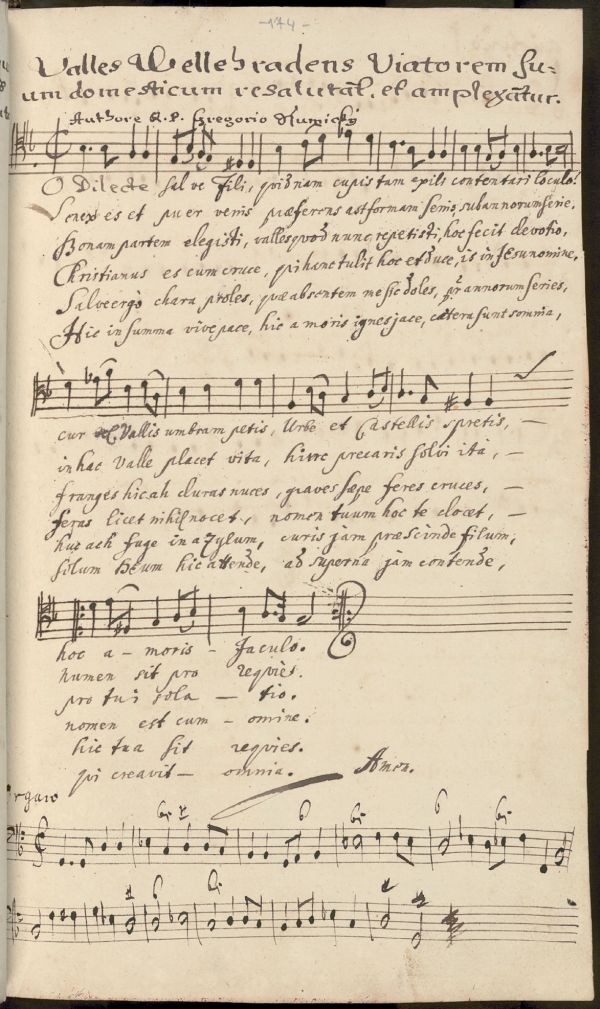 -174-
Valles Wellehradens Viatorem su=
um domesticum resalutāt. et amplexātur.
Authore R. P. Gregorio
O Dilecte salve Fili, quidnam cupis tam exili contentari loculo?
Senex es et puer veris præferens ast formam senis, sub annorum serie,
Bonam partem elegisti, valles quod nunc repetisti, hoc fecit devotio,
Christianus es cum cruce, qui hanc tulit hoc et duce, is in Jesu nomine,
Salve ergò chara proles, quæ absentem me sic doles, pr̄ annorum series,
Hic in summa vive pace, hic amoris ignes jace, cætera sunt somnia,
cur Vallis umbram petis, Urbe et Castellis spretis, -
in hac Valle placet vita, hinc precaris solvi ita, -
franges hic ah duras nuces, graves sæpe feres cruces, -
feras licet nihil nocet, nomen tuum hoc te docet, -
huc ach fuge in azylum, curis jam præscinde filum,
solum Deum hic attende, ad superna jam contende,
hoc a - moris - Jaculo.
numen sit pro requies.
pro tui sola - tio.
nomen est cum - omine.
hic tua sit requies.
qui creavit - omnia. Amen.
6
6
6